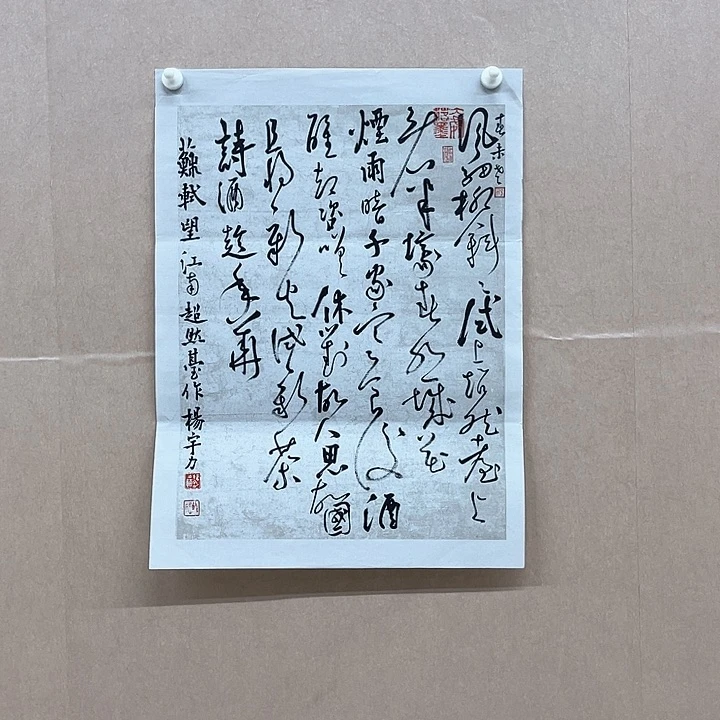 春未老
風細柳斜斜試上超然臺上
看半壕春水一城花
煙雨暗千家寒食後酒
醒却咨嗟休對故人思故國
且將新火試新茶
詩酒趁年華
蘇軾望江南超然臺作楊宇力